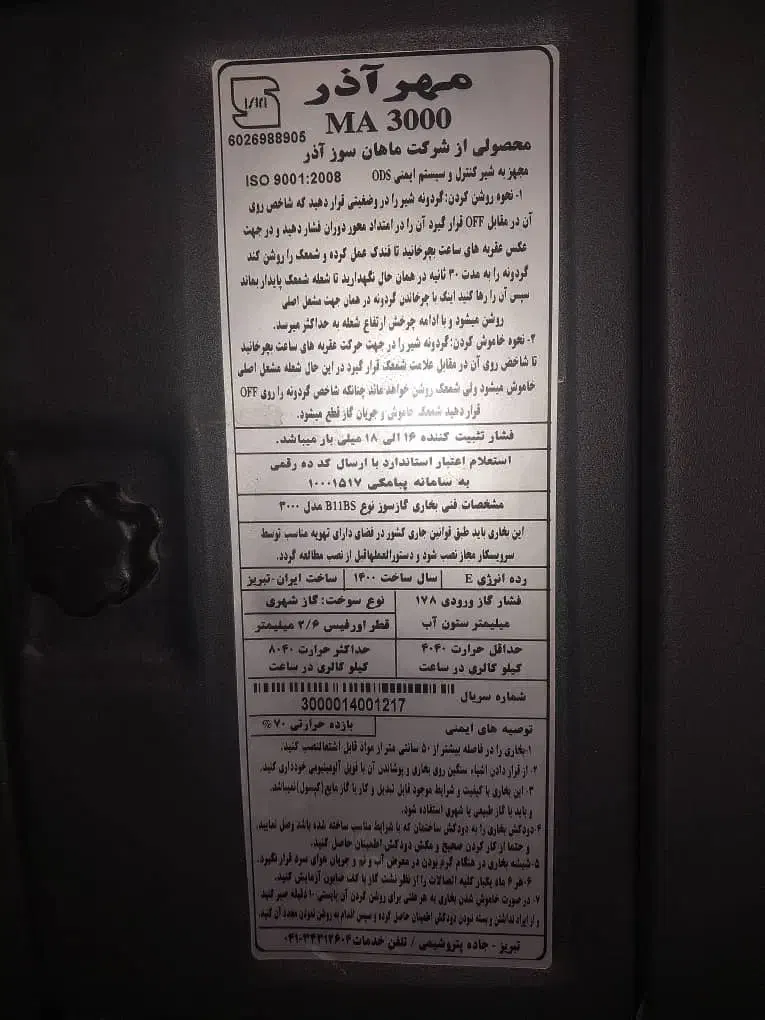 مهر آذر
ISIRI
6026988905
MA 3000
محصولی از شرکت ماهان سوز آذر
مجهز به شیر کنترل و سیستم ایمنی ODS
ISO 9001:2008
۱- نحوه روشن کردن: گردونه شیر را در وضعیتی قرار دهید که شاخص روی
آن در مقابل OFF قرار گیرد آن را در امتداد محور دوران فشار دهید و در جهت
عکس عقربه های ساعت بچرخانید تا فندک عمل کرده و شمعک را روشن کند
گردونه را به مدت ۳۰ ثانیه در همان حال نگهدارید تا شعله شمعک پایدار بماند
سپس آن را رها کنید اینک با چرخاندن گردونه در همان جهت مشعل اصلی
روشن میشود و با ادامه چرخش ارتفاع شعله به حداکثر میرسد.
۲- نحوه خاموش کردن: گردونه شیر را در جهت حرکت عقربه های ساعت بچرخانید
تا شاخص روی آن در مقابل علامت شمعک قرار گیرد در این حال شعله مشعل اصلی
خاموش میشود ولی شمعک روشن خواهد ماند چنانکه شاخص گردونه را روی OFF
قرار دهید شمعک خاموش و جریان گاز قطع میشود.
فشار تثبیت کننده ۱۶ الی ۱۸ میلی بار میباشد.
استعلام اعتبار استاندارد با ارسال کد ده رقمی
به سامانه پیامکی ۱۰۰۰۱۵۱۷
مشخصات فنی بخاری گازسوز نوع B11BS مدل ۳۰۰۰
این بخاری باید طبق قوانین جاری کشور در فضای دارای تهویه مناسب توسط
سرویسکار مجاز نصب شود و دستورالعملها قبل از نصب مطالعه گردد.
رده انرژی E
سال ساخت ۱۴۰۰
ساخت ایران-تبریز
فشار گاز ورودی ۱۷۸
میلیمتر ستون آب
نوع سوخت: گاز شهری
قطر اورفیس ۲/۶ میلیمتر
حداقل حرارت ۴۰۴۰
کیلو کالری در ساعت
حداکثر حرارت ۸۰۴۰
کیلو کالری در ساعت
شماره سریال
3000014001217
توصیه های ایمنی
بازده حرارتی ۷۰ %
۱- بخاری را در فاصله بیشتر از ۵۰ سانتی متر از مواد قابل اشتعال نصب کنید.
۲- از قرار دادن اشیاء سنگین روی بخاری و پوشاندن آن با فویل آلومینیومی خودداری کنید.
۳- این بخاری با کیفیت و شرایط موجود قابل تبدیل و کار با گاز مایع (کپسول) نمیباشد.
و باید با گاز طبیعی یا شهری استفاده شود.
۴- دودکش بخاری را به دودکش ساختمان که با شرایط مناسب ساخته شده باشد وصل نمایید.
و حتما از کار کردن صحیح و مکش دودکش اطمینان حاصل کنید.
۵- شیشه بخاری در هنگام گرم بودن در معرض آب و نم و جریان هوای سرد قرار نگیرد.
۶- هر ۶ ماه یکبار کلیه اتصالات را از نظر نشت گاز با کف صابون آزمایش کنید.
۷- در صورت خاموش شدن بخاری به هر علتی برای روشن کردن آن بایستی ۱۰ دقیقه صبر کنید
و از ایراد نداشتن و بسته نبودن دودکش اطمینان حاصل کرده و سپس اقدام به روشن نمودن مجدد آن کنید.
تبریز - جاده پتروشیمی / تلفن خدمات ۳۴۳۱۲۶۰۴-۰۴۱